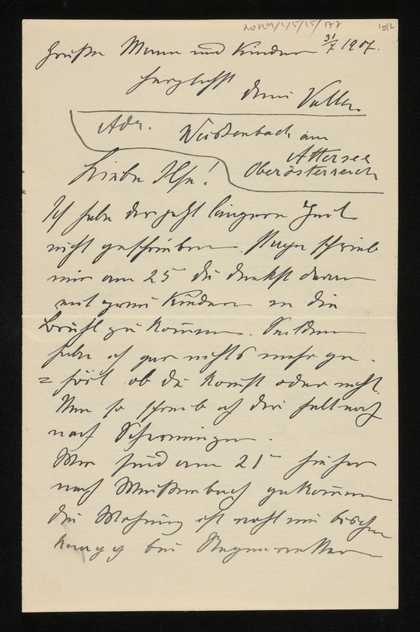 Grüße Mann und Kinder 31/7 1907.
herzlichst Dein Vater.
Adr. Weißenbach am
Attersee
Oberösterreich
Liebe Ilse!
Ich habe Dir jetzt längere Zeit
nicht geschrieben
mir am 25 Du denkst daran
mit zwei Kindern in die
Brühl zu kommen. Seitdem
habe ich gar nichts mehr ge-
=hört ob Du kommst oder nicht.
Nun so schreib ich Dir halt noch
nach
Wir sind am 21 hieher
nach Weißenbach gekommen
die Wohnung ist recht ein bischen
knapp bei Regenwetter